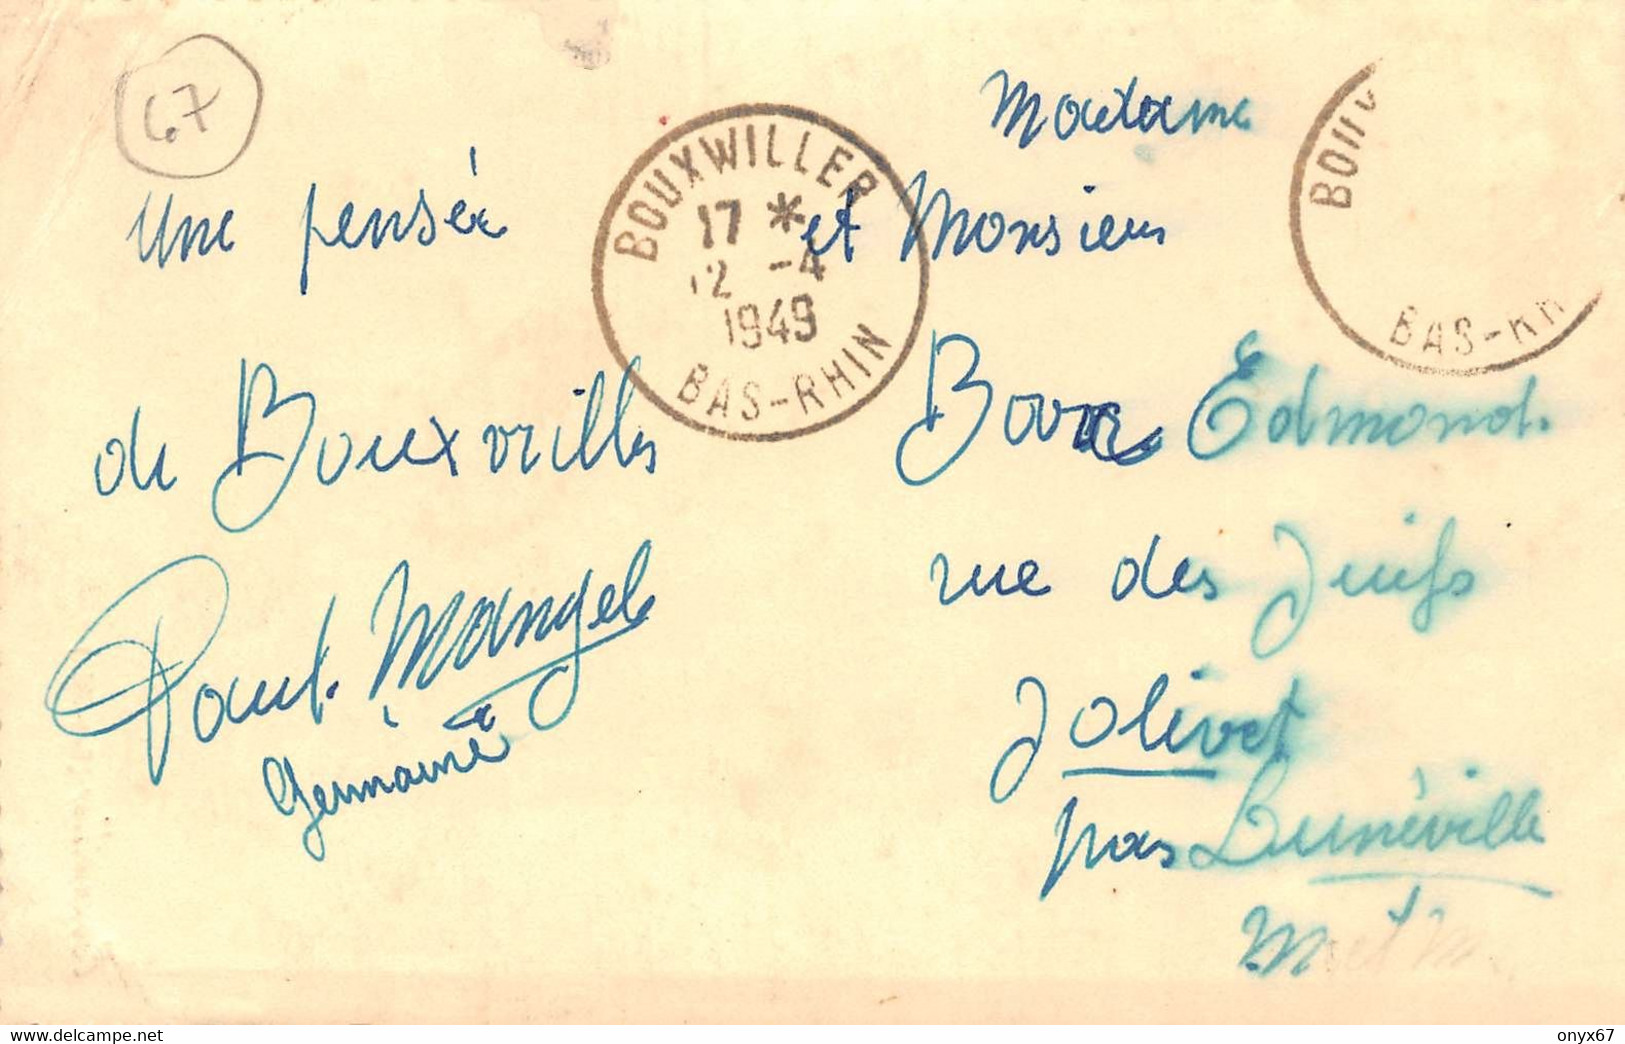 67
Une pensée
de Bouxwiller
Paul Mangel
Germaine
BOUXWILLER
17 *
12 -4
1949
BAS-RHIN
Madame
et Monsieur
Edmond.
rue des Juifs
Jolivet
par Lunéville
M et M
BOUX
BAS-RH
www.delcampe.net
onyx67